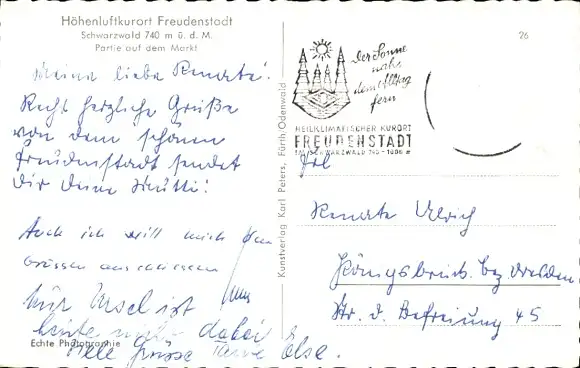 Höhenluftkurort Freudenstadt
Schwarzwald 740 m ü. d. M.
Partie auf dem Markt
Meine liebe Renate!
Recht herzliche Grüße
von dem schönen
Freudenstadt sendet
Dir Deine Mutti!
Auch ich will mich den
Grüssen anschliessen
ist
heute nicht dabei
Viele Grüsse Tante Else.
Echte Photographie
Kunstverlag Karl Peters, Fürth/Odenwald
der Sonne
nah,
dem Alltag
fern
HEILKLIMATISCHER KURORT
FREUDENSTADT
IM SCHWARZWALD 740 - 1000 m
26
Frl
Renate Ulrich
Königsbrück bez Dresden
Str. d. Befreiung 45